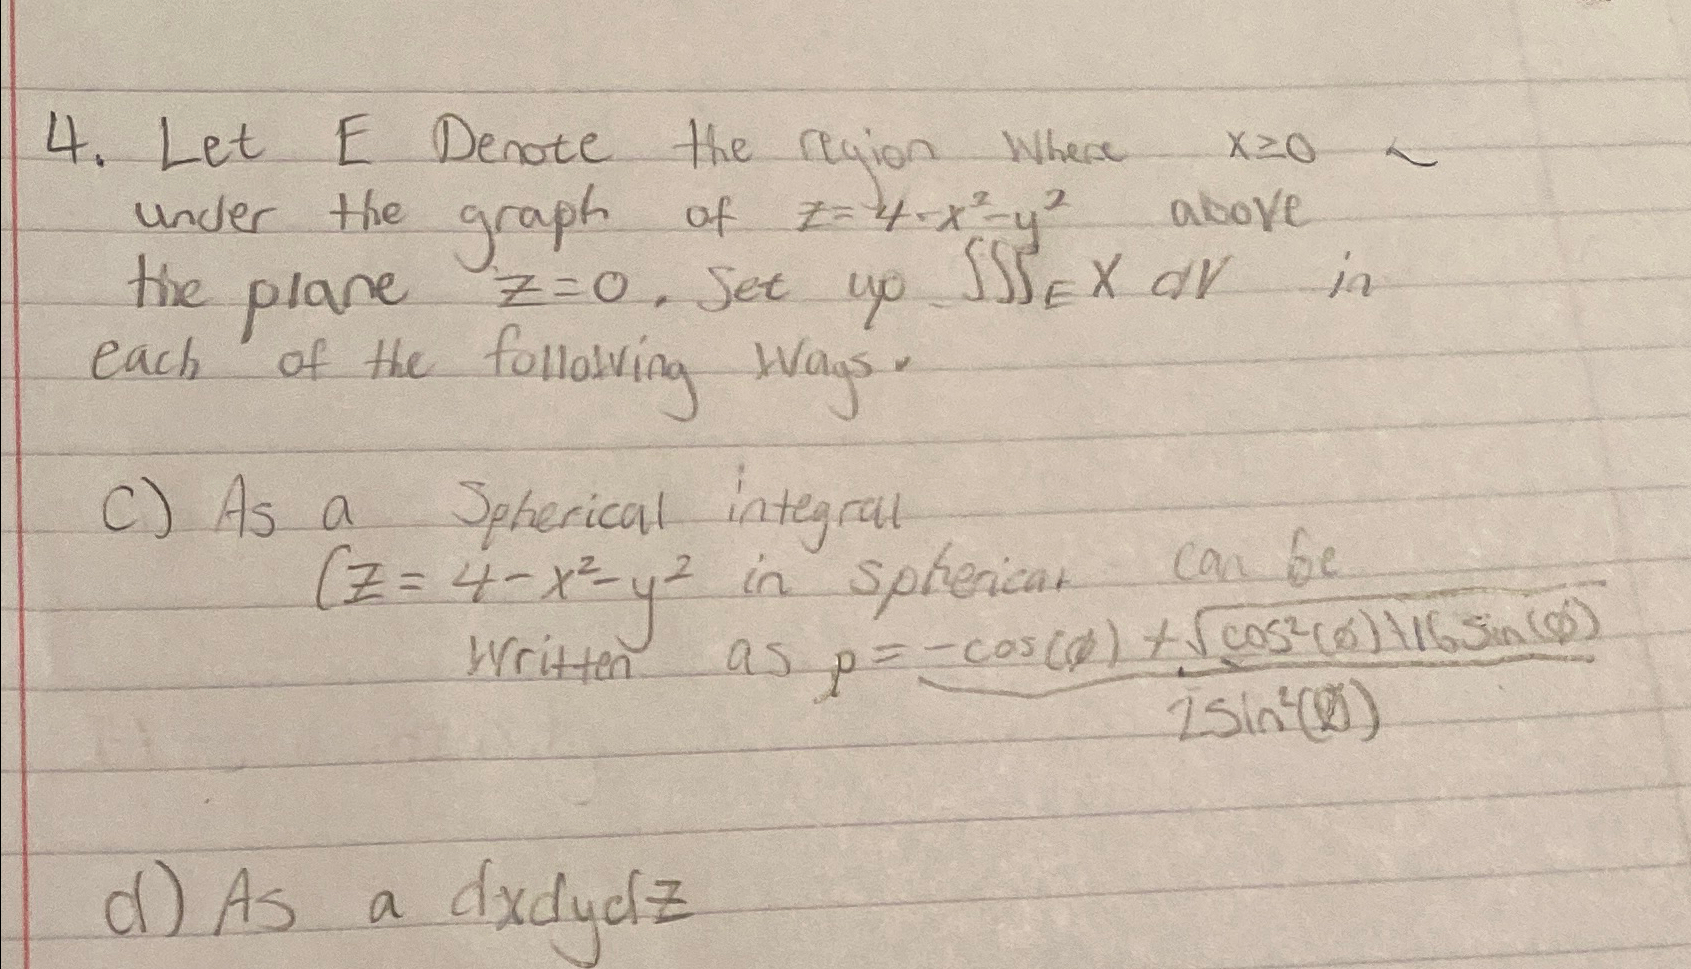 4. Let E Denote the region where x≥0
under the graph of z=4-x²-y² above
the plane z=0. Set up ∫∫∫_E x dV in
each of the following ways.
C) As a Spherical integral
(z=4-x²-y² in spherical can be
written as ρ = (-cos(φ) + √(cos²(φ)+16sin(φ))) / (2sin²(φ))
d) As a dxdydz